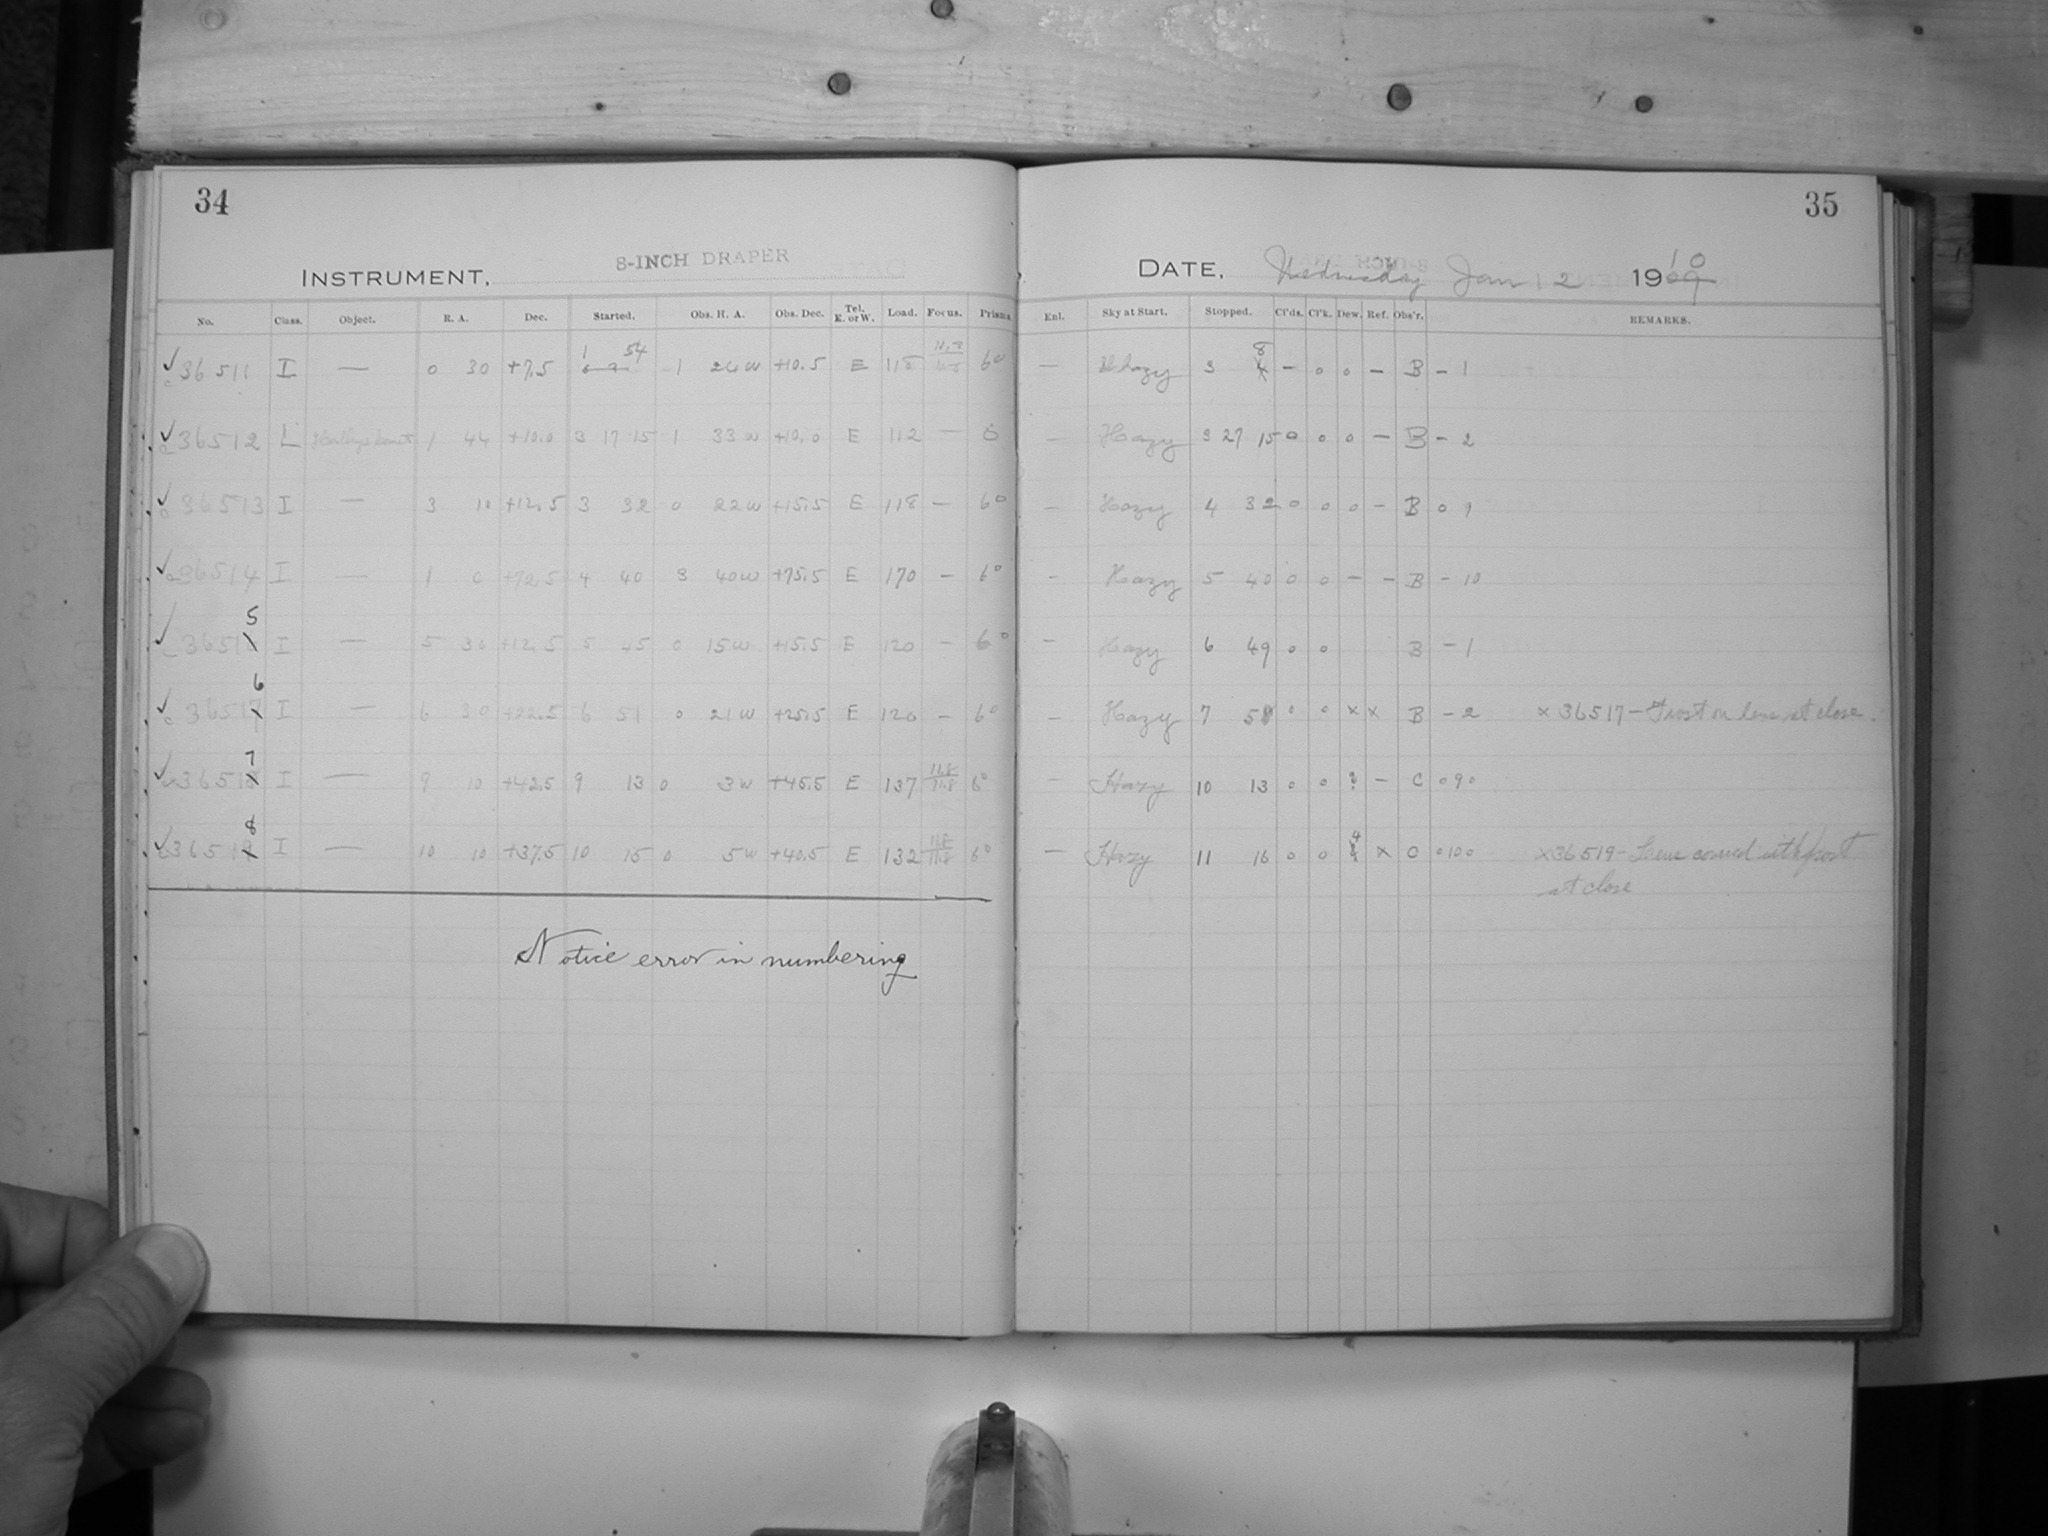 34
35
INSTRUMENT, 8-INCH DRAPER
DATE, Wednesday Jan 12 1909 10
No. Class. Object. R. A. Dec. Started. Obs. H. A. Obs. Dec. Tel. E. or W. Load. Focus. Prism.
Enl. Sky at Start. Stopped. Cl'ds. Cl'k. Dew. Ref. Obs'r. REMARKS.
36511 I — 0 30 +7.5 1 54 1 24 W +10.5 E 118 6° — Hazy 3 8 — 0 0 — B – 1
36512 L 1 44 +10.0 3 17 15 1 33 W +10.0 E 112 — 0 — Hazy 3 27 15 0 0 0 — B – 2
36513 I — 3 10 +12.5 3 32 0 22 W +15.5 E 118 — 6° — Hazy 4 32 0 0 0 – B 0 1
36514 I — 1 0 +72.5 4 40 3 40 W +75.5 E 170 — 6° – Hazy 5 40 0 0 – – B – 10
5
3651 I — 5 30 +12.5 5 45 0 15 W +15.5 E 120 – 6° — Hazy 6 49 0 0 B – 1
6
36517 I — 6 30 +22.5 6 51 0 21 W +25.5 E 120 – 6° – Hazy 7 51 0 0 x x B – 2 x 36517 – Frost on lens at close.
7
36518 I — 9 10 +42.5 9 13 0 3 W +45.5 E 137 11.8 11.8 6° – Hazy 10 13 0 0 ? – C 090
8
36519 I — 10 10 +37.5 10 15 0 5 W +40.5 E 132 11.8 11.8 6° — Hazy 11 16 0 0 4 x C 0100 x 36519 – Lens covered with frost
at close
Notice error in numbering